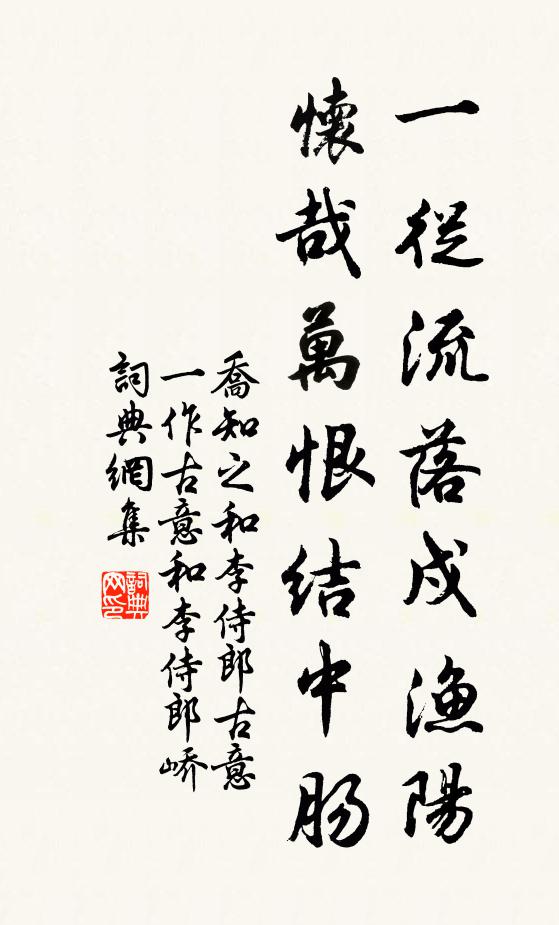 一從流落戍漁陽
懷哉萬恨結中腸
喬知之和李侍郎古意
一作古意和李侍郎嶠
詞典網集
詞典
网印